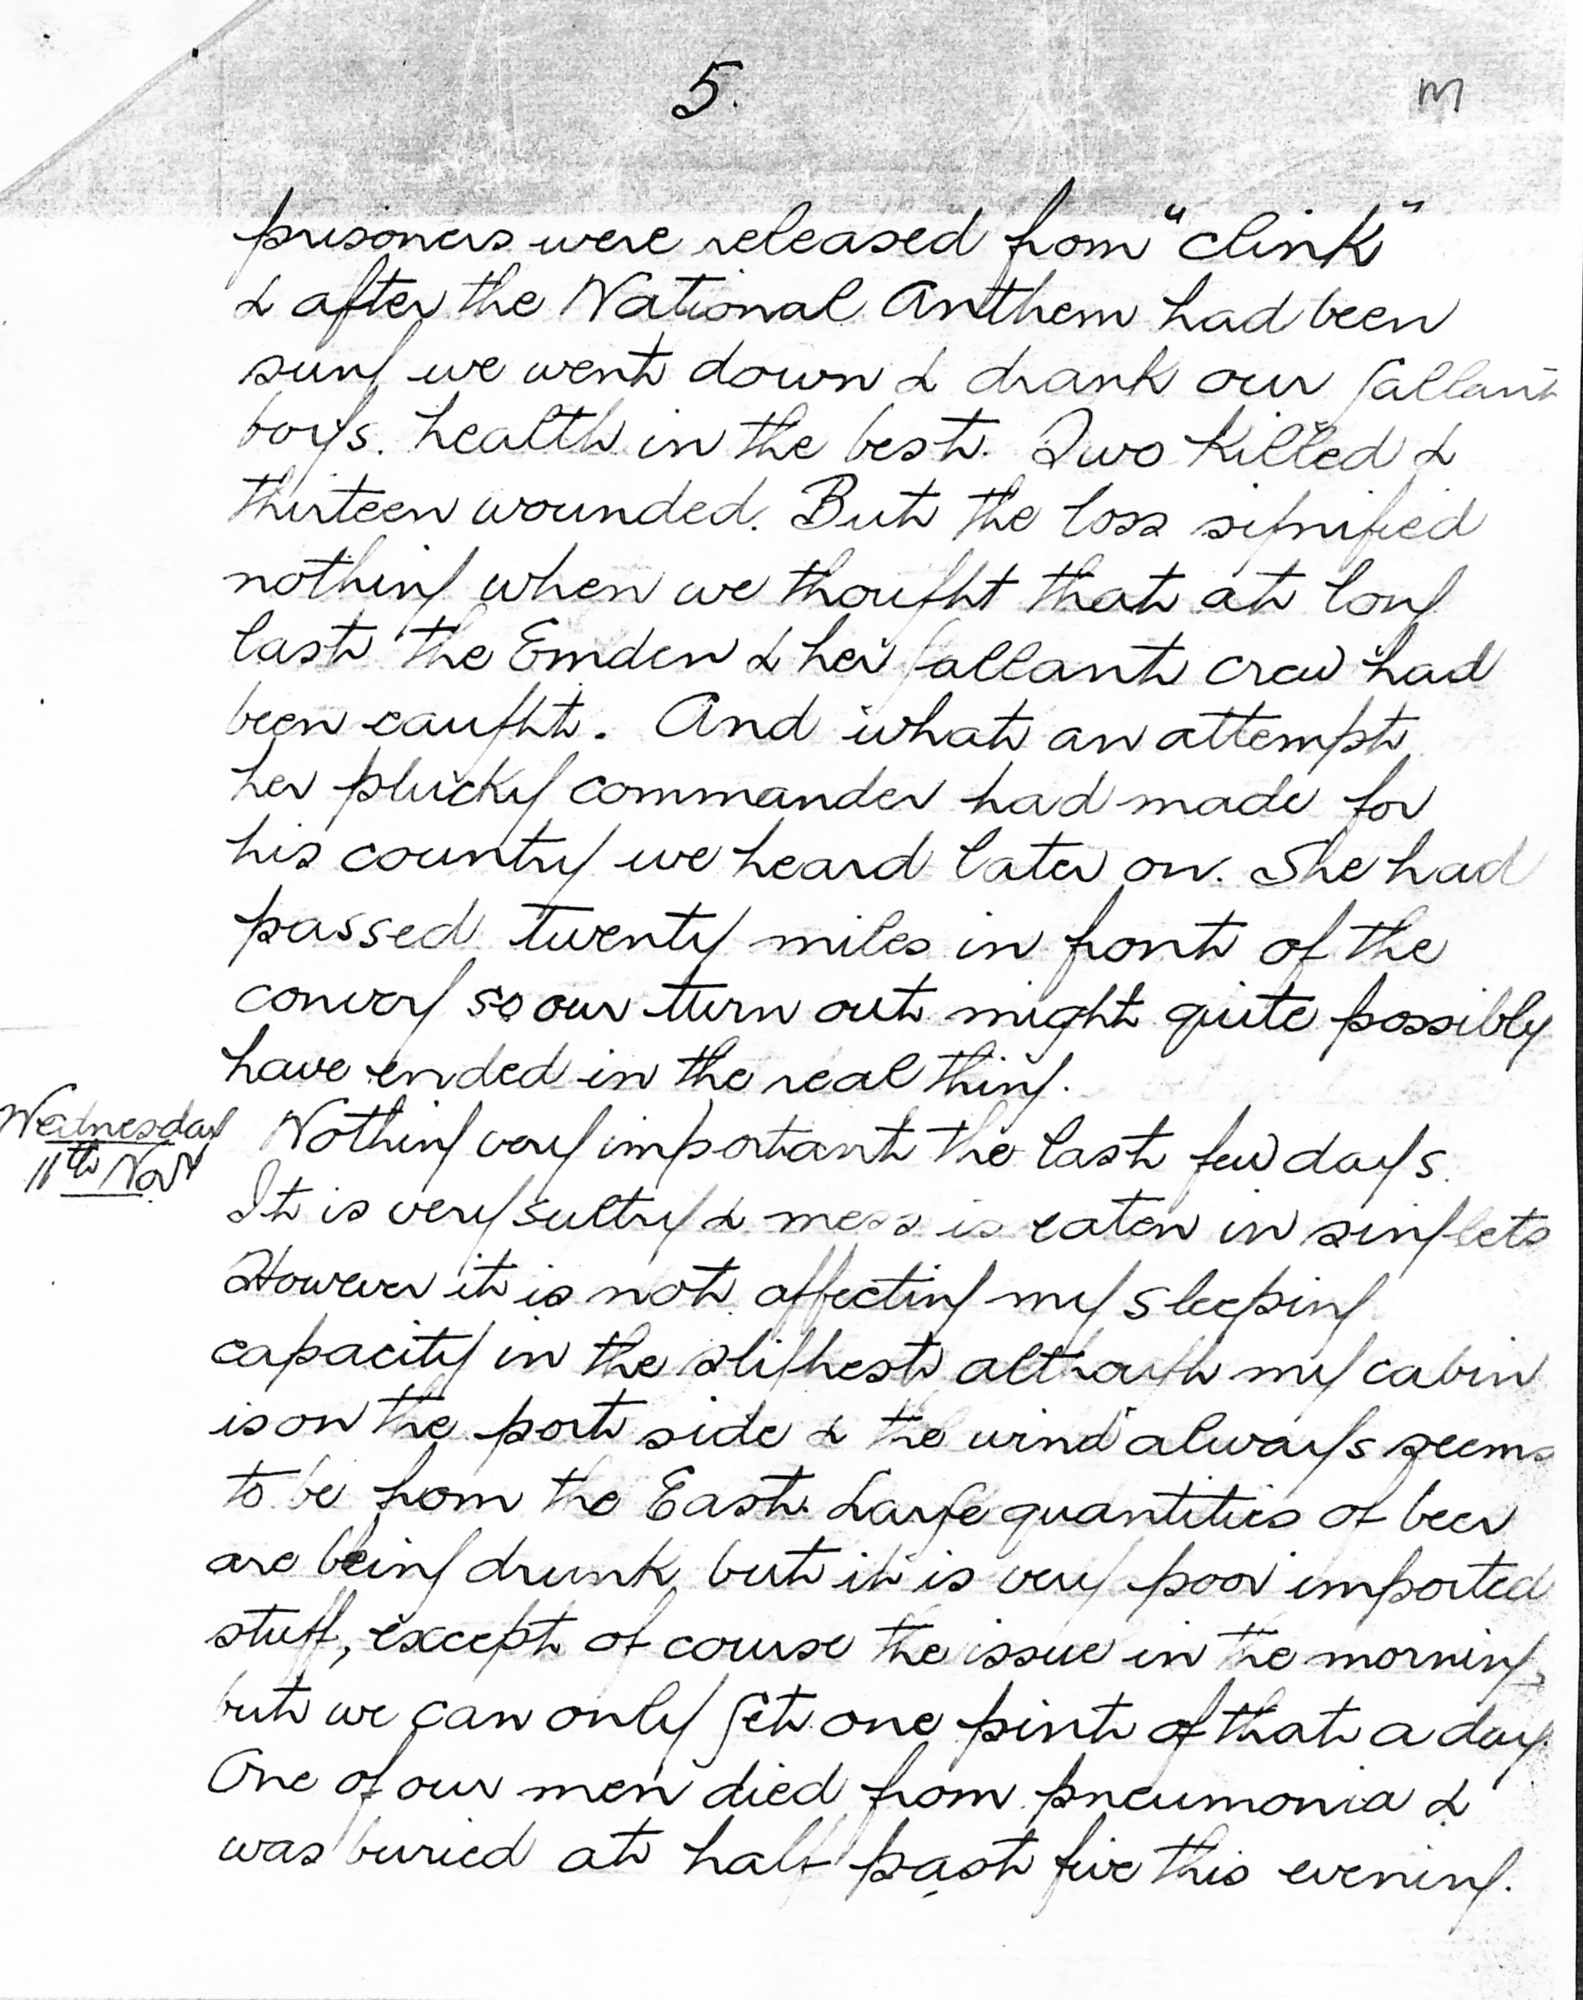 5.
m
prisoners were released from "clink"
& after the National Anthem had been
sung we went down & drank our gallant
boys. health in the best. Two killed &
thirteen wounded. But the loss signified
nothing when we thought that at long
last the Emden & her gallant crew had
been caught. And what an attempt
her plucky commander had made for
his country we heard later on. She had
passed twenty miles in front of the
convoy so our turn out might quite possibly
have ended in the real thing.
Wednesday
11th Nov
Nothing very important the last few days.
It is very sultry & mess is eaten in singlets
However it is not affecting my sleeping
capacity in the slighest although my cabin
is on the port side & the wind always seems
to be from the East. Large quantities of beer
are being drunk but it is very poor imported
stuff, except of course the issue in the morning,
but we can only get one pint of that a day.
One of our men died from pneumonia &
was buried at half past five this evening.